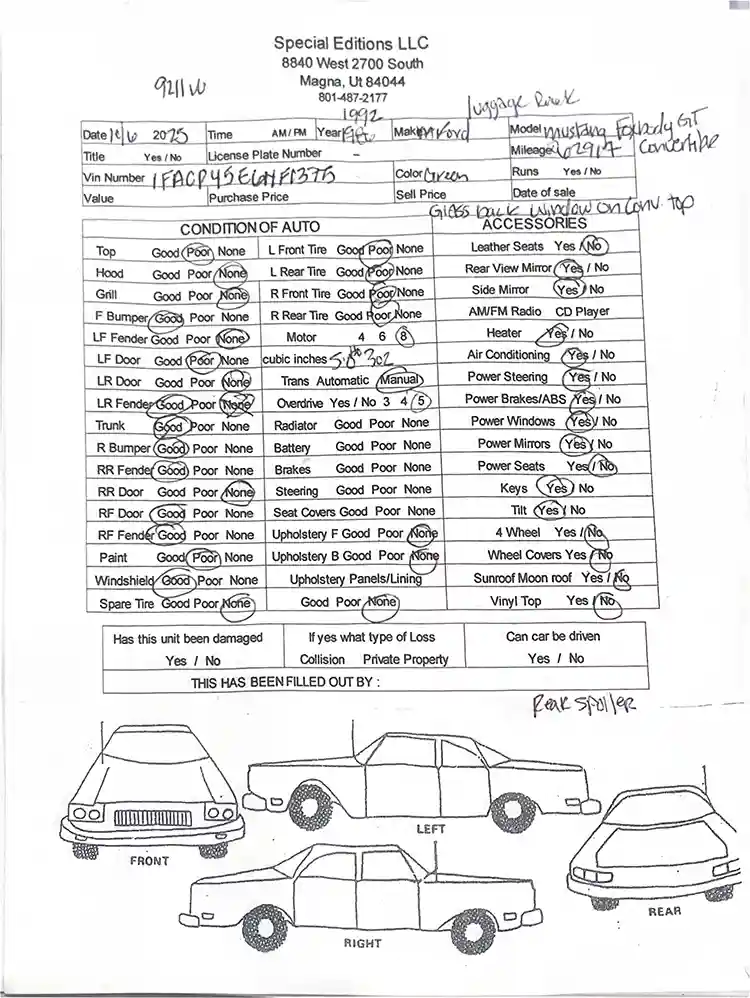 Special Editions LLC
8840 West 2700 South
Magna, Ut 84044
801-487-2177
luggage Rack
1992
Date 2025 Time AM / PM Year Make Ford Model Mustang Foxbody GT
Convertible
Title Yes / No License Plate Number - Mileage 62917
Vin Number Color Green Runs Yes / No
Value Purchase Price Sell Price Date of sale
Glass back window on Conv. top
CONDITION OF AUTO ACCESSORIES
Top Good Poor None L Front Tire Good Poor None Leather Seats Yes / No
Hood Good Poor None L Rear Tire Good Poor None Rear View Mirror Yes / No
Grill Good Poor None R Front Tire Good Poor None Side Mirror Yes / No
F Bumper Good Poor None R Rear Tire Good Poor None AM/FM Radio CD Player
LF Fender Good Poor None Motor 4 6 8 Heater Yes / No
LF Door Good Poor None cubic inches 302 Air Conditioning Yes / No
LR Door Good Poor None Trans Automatic Manual Power Steering Yes / No
LR Fender Good Poor None Overdrive Yes / No 3 4 5 Power Brakes/ABS Yes / No
Trunk Good Poor None Radiator Good Poor None Power Windows Yes / No
R Bumper Good Poor None Battery Good Poor None Power Mirrors Yes / No
RR Fender Good Poor None Brakes Good Poor None Power Seats Yes / No
RR Door Good Poor None Steering Good Poor None Keys Yes / No
RF Door Good Poor None Seat Covers Good Poor None Tilt Yes / No
RF Fender Good Poor None Upholstery F Good Poor None 4 Wheel Yes / No
Paint Good Poor None Upholstery B Good Poor None Wheel Covers Yes / No
Windshield Good Poor None Upholstery Panels/Lining Sunroof Moon roof Yes / No
Spare Tire Good Poor None Good Poor None Vinyl Top Yes / No
Has this unit been damaged If yes what type of Loss Can car be driven
Yes / No Collision Private Property Yes / No
THIS HAS BEEN FILLED OUT BY :
Rear Spoiler
LEFT
FRONT
REAR
RIGHT